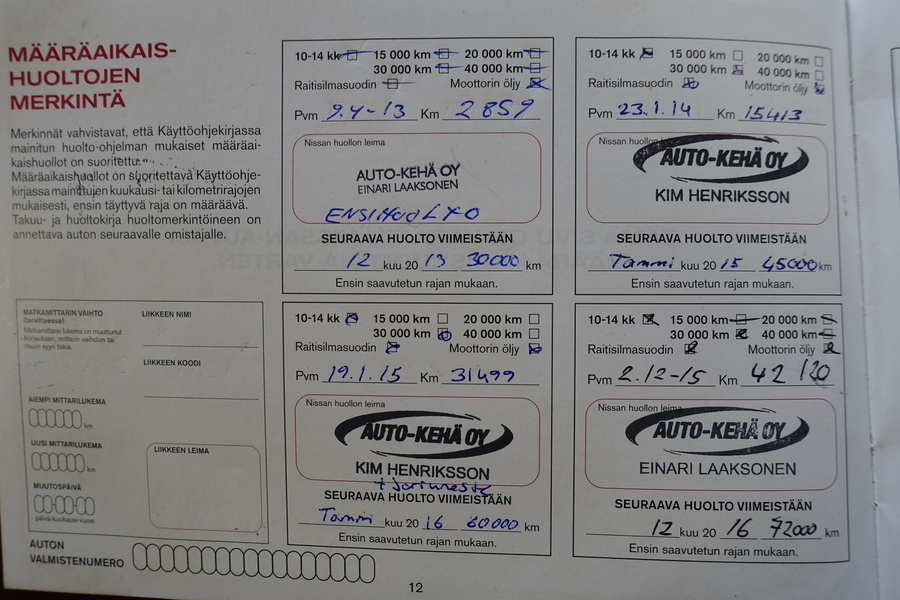 MÄÄRÄAIKAIS-
HUOLTOJEN
MERKINTÄ
Merkinnät vahvistavat, että Käyttöohjekirjassa
mainitun huolto-ohjelman mukaiset määräai-
kaishuollot on suoritettu.
Määräaikaishuollot on suoritettava Käyttöohje-
kirjassa mainittujen kuukausi- tai kilometrirajojen
mukaisesti, ensin täyttyvä raja on määräävä.
Takuu- ja huoltokirja huoltomerkintöineen on
annettava auton seuraavalle omistajalle.
10-14 kk 15 000 km 20 000 km
30 000 km 40 000 km
Raitisilmasuodin Moottorin öljy
Pvm 9.4-13 Km 2859
Nissan huollon leima
AUTO-KEHÄ OY
EINARI LAAKSONEN
ENSIHUOLTO
SEURAAVA HUOLTO VIIMEISTÄÄN
12 kuu 20 13 30000 km
Ensin saavutetun rajan mukaan.
10-14 kk 15 000 km 20 000 km
30 000 km 40 000 km
Raitisilmasuodin Moottorin öljy
Pvm 23.1.14 Km 15413
Nissan huollon leima
AUTO-KEHÄ OY
KIM HENRIKSSON
SEURAAVA HUOLTO VIIMEISTÄÄN
Tammi kuu 20 15 45000 km
Ensin saavutetun rajan mukaan.
MATKAMITTARIN VAIHTO
(tarvittaessa)
Matkamittarin lukema on muuttunut
korjauksen, mittarin vaihdon tai
muun syyn takia.
LIIKKEEN NIMI
LIIKKEEN KOODI
AIEMPI MITTARILUKEMA
km
UUSI MITTARILUKEMA
km
MUUTOSPÄIVÄ
päivä-kuukausi-vuosi
LIIKKEEN LEIMA
10-14 kk 15 000 km 20 000 km
30 000 km 40 000 km
Raitisilmasuodin Moottorin öljy
Pvm 19.1.15 Km 31499
Nissan huollon leima
AUTO-KEHÄ OY
KIM HENRIKSSON
SEURAAVA HUOLTO VIIMEISTÄÄN
Tammi kuu 20 16 60000 km
Ensin saavutetun rajan mukaan.
10-14 kk 15 000 km 20 000 km
30 000 km 40 000 km
Raitisilmasuodin Moottorin öljy
Pvm 2.12-15 Km 42 120
Nissan huollon leima
AUTO-KEHÄ OY
EINARI LAAKSONEN
SEURAAVA HUOLTO VIIMEISTÄÄN
12 kuu 20 16 72000 km
Ensin saavutetun rajan mukaan.
AUTON
VALMISTENUMERO
12